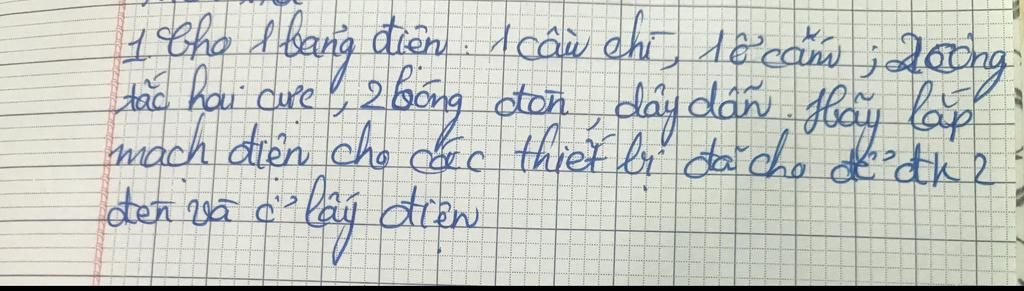 1 Cho 1 bảng điện : 1 cầu chì, 1 ổ cắm ; 2 công
tắc hai cực, 2 bóng đèn, dây dẫn. Hãy lắp
mạch điện cho các thiết bị đã cho để đk 2
đèn và ổ lấy điện